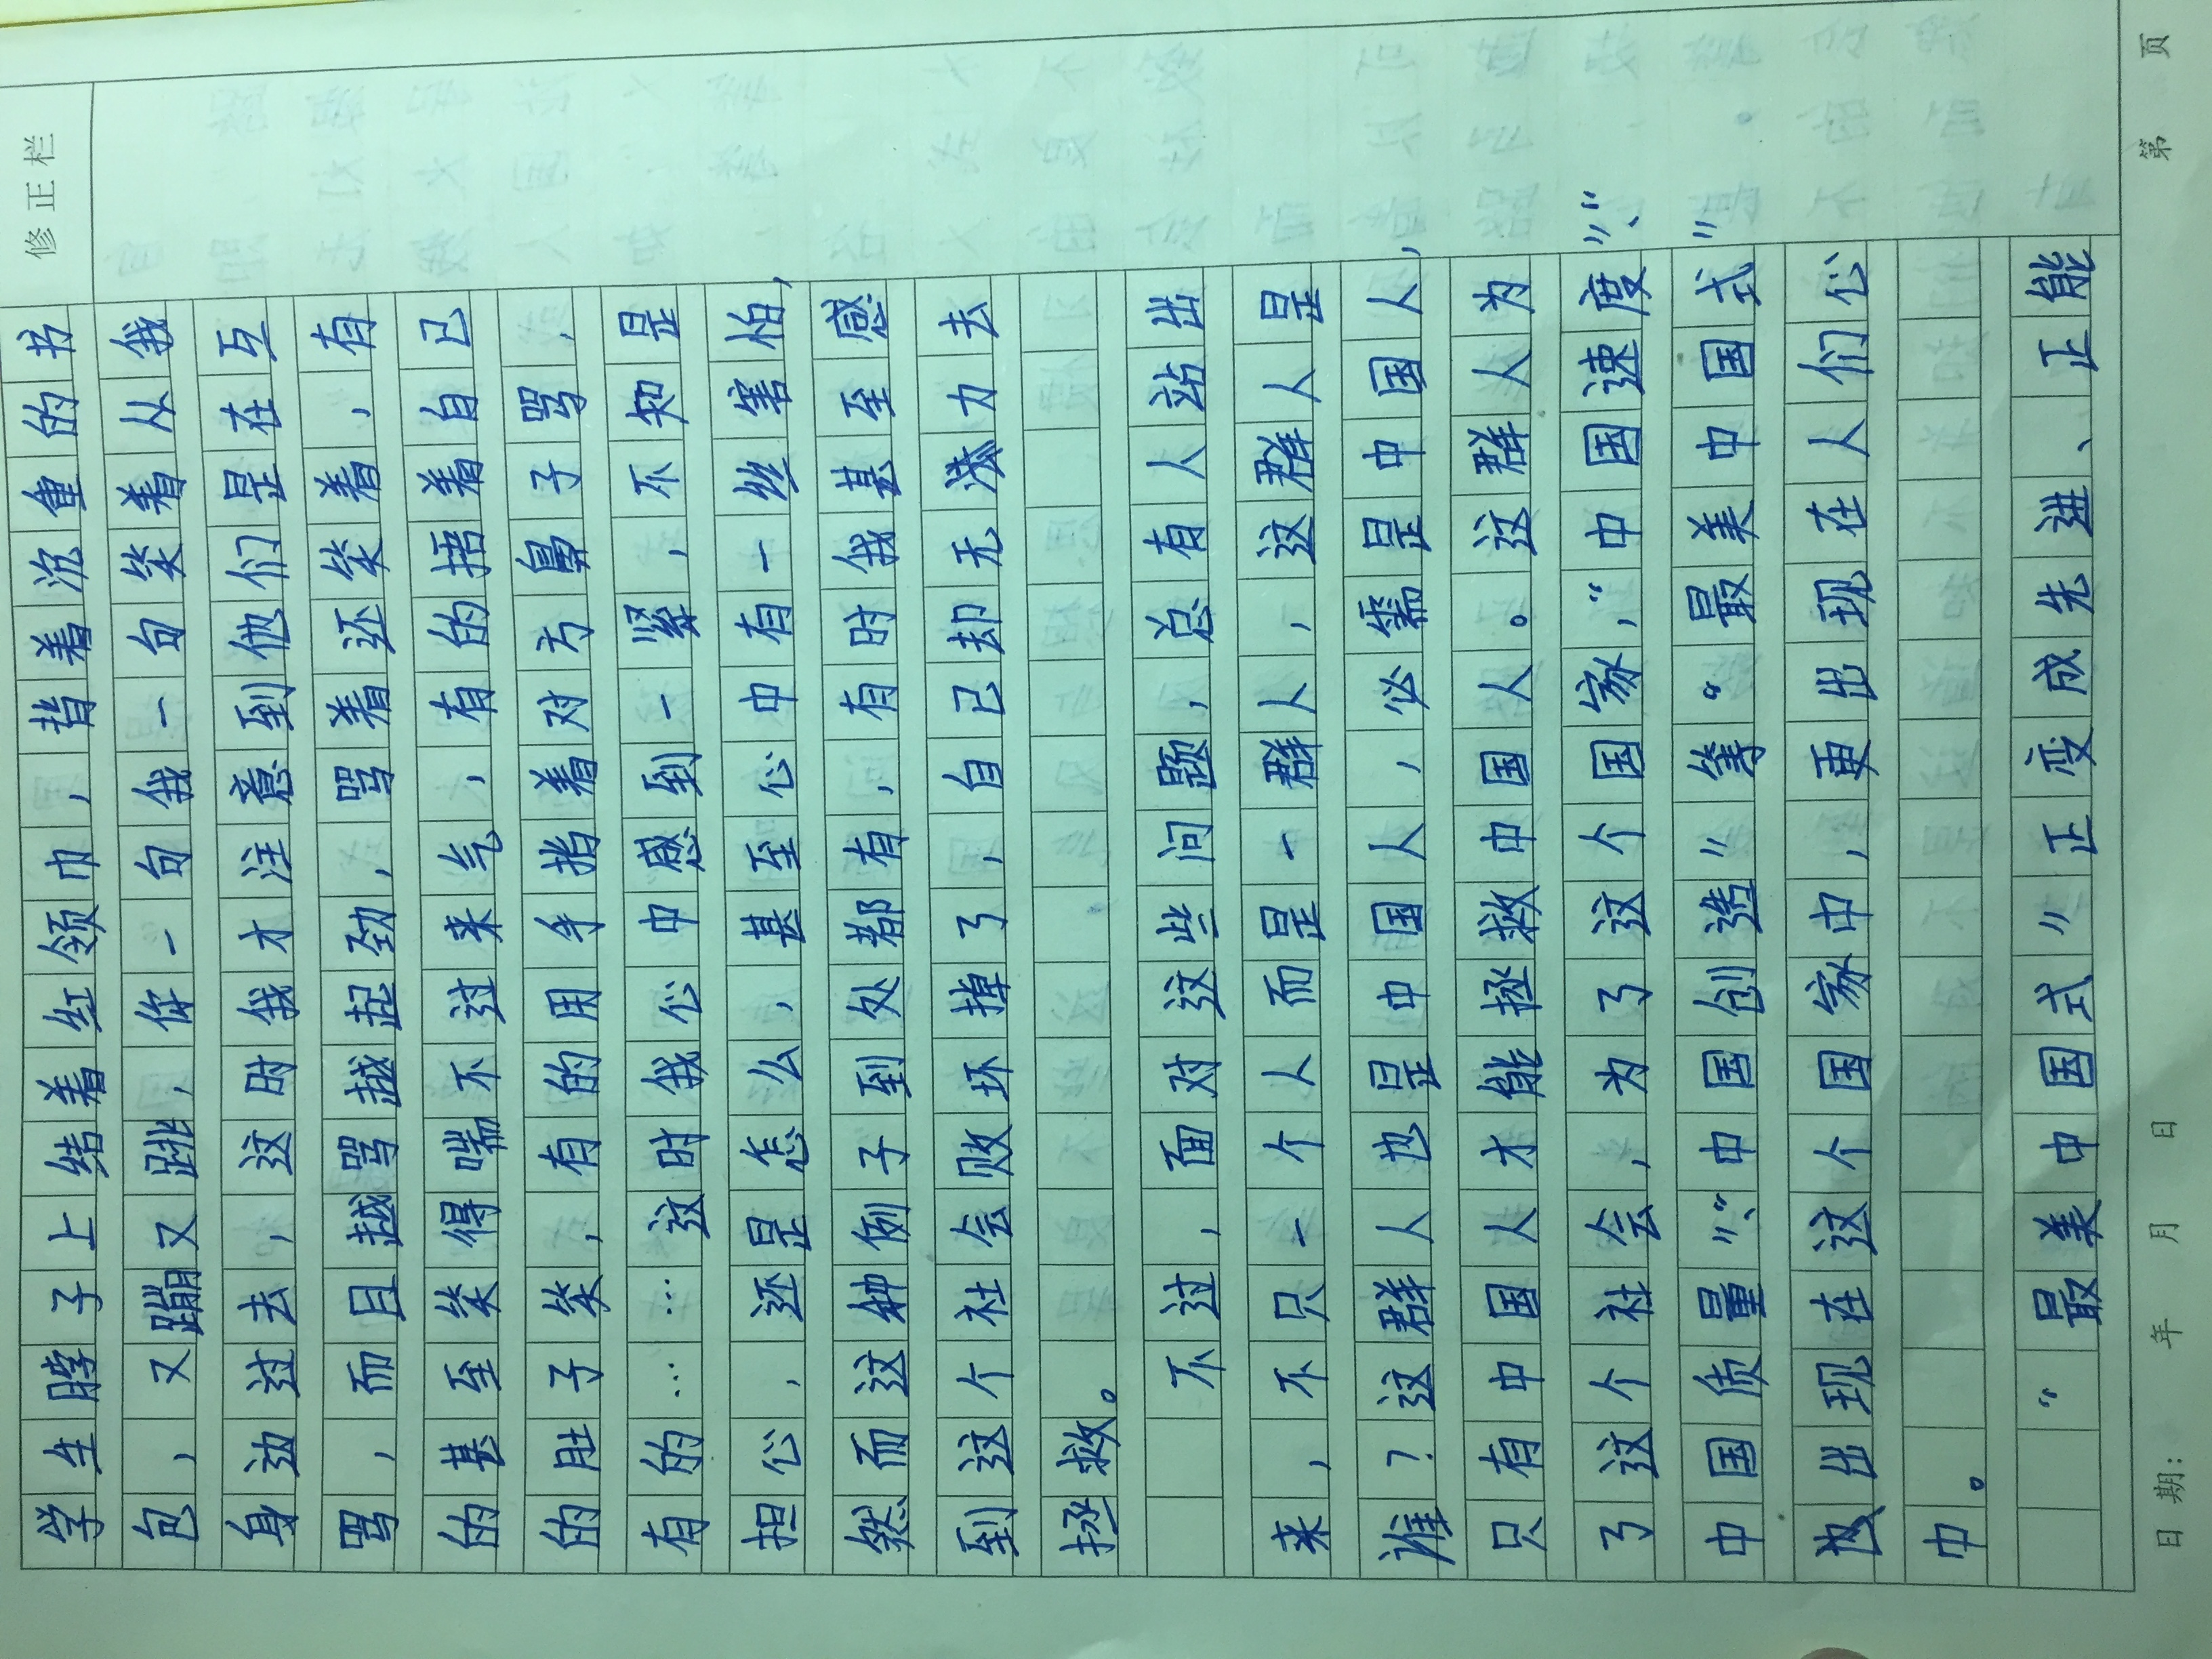 修正栏
学生脖子上结着红领巾，揹着沉重的书
包，又蹦又跳，你一句我一句笑着从我
身边过去，这时我才注意到他们是在互
骂，而且越骂越起劲，骂着还笑着，有
的甚至笑得喘不过来气，有的捂着自己
的肚子笑，有的用手指着对方鼻子骂，
有的……这时我心中感到一紧，不知是
担心，还是怎么，甚至心中有一丝害怕，
然而这种例子到处都有，有时我甚至感
到这个社会败坏掉了，自己却无凑力去
拯救。
不过，面对这些问题，总有人站出
来，不只一个人而是一群人，这群人是
谁？这群人也是中国人，必需是中国人，
只有中国人才能拯救中国人。这群人为
了这个社会，为了这个国家，“中国速度”、“
中国质量”、“中国创造”等。最美中国式”
也出现在这个国家中，更出现在人们心
中。
“最美中国式”正变成先进、正能
日期： 年 月 日 第 页